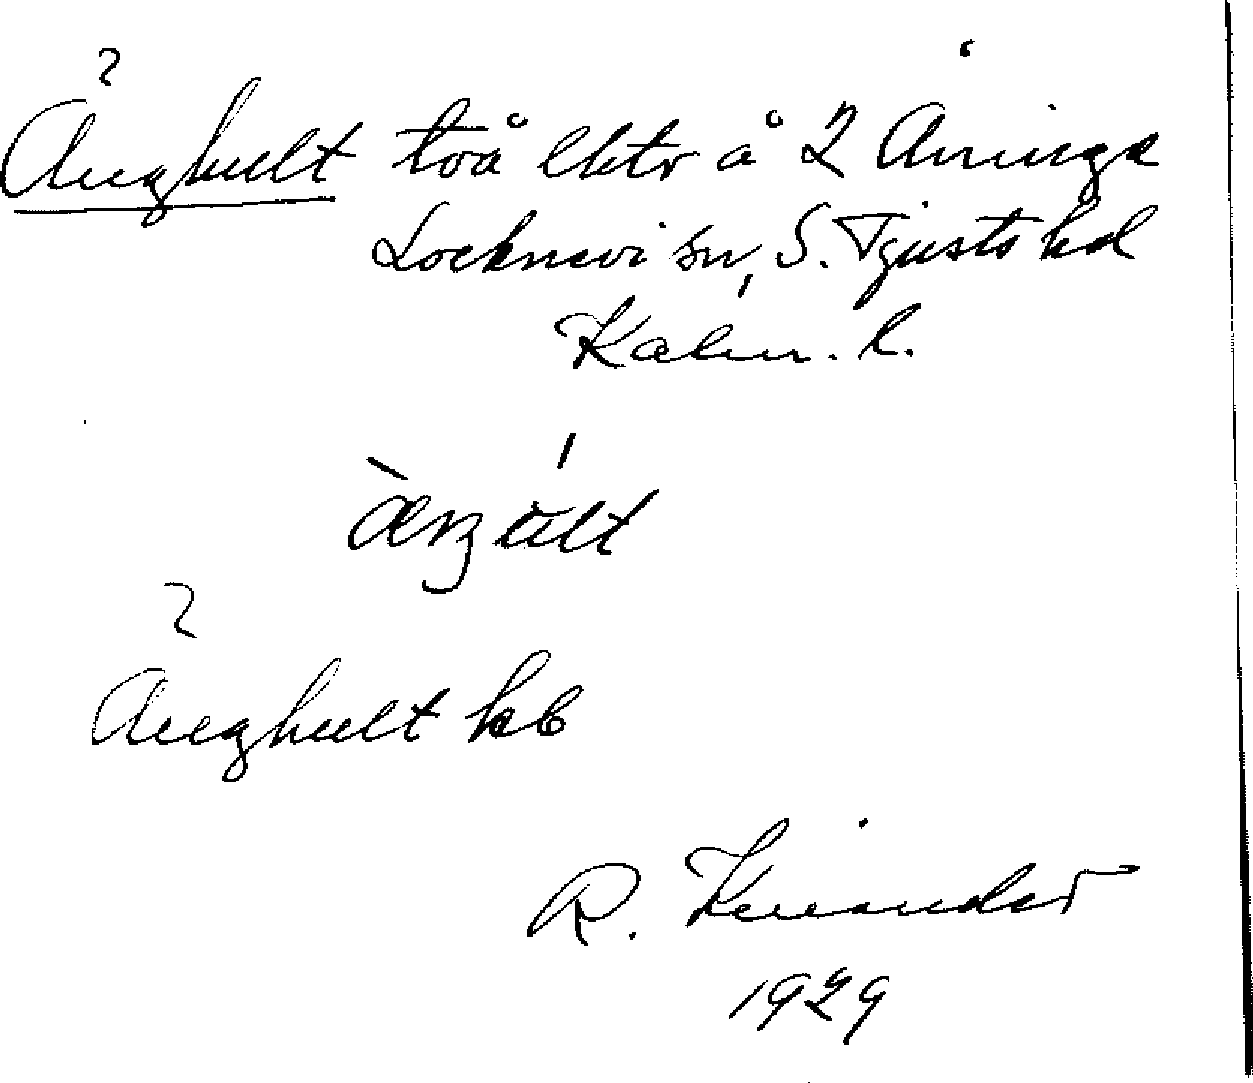 Änghult två lktr å 2 Århinge
Locknevi sn, S. Tjusts hd
Kalm. l.
Änghult kb
R. Kinander
1929